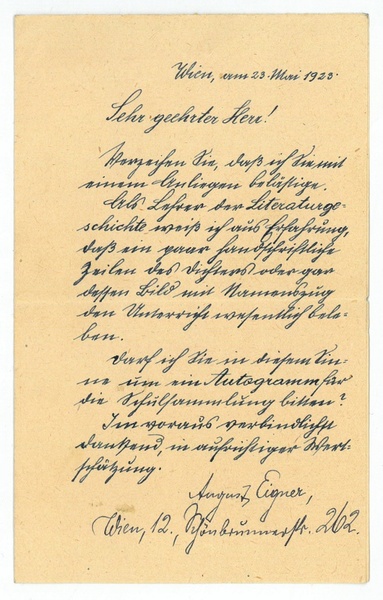 Wien, am 23. Mai 1923.
Sehr geehrter Herr!
Verzeihen Sie, daß ich Sie mit
einem Anliegen belästige.
Als Lehrer der Literaturge-
schichte weiß ich aus Erfahrung,
daß ein paar handschriftliche
Zeilen des Dichters oder gar
dessen Bild mit Namenszug
den Unterricht wesentlich bele-
ben.
Darf ich Sie in diesem Sin-
ne um ein Autogramm für
die Schulsammlung bitten?
Im voraus verbindlichst
dankend, in aufrichtiger Wert-
schätzung.
August Eigner,
Wien, 12., Schönbrunnerstr. 262.